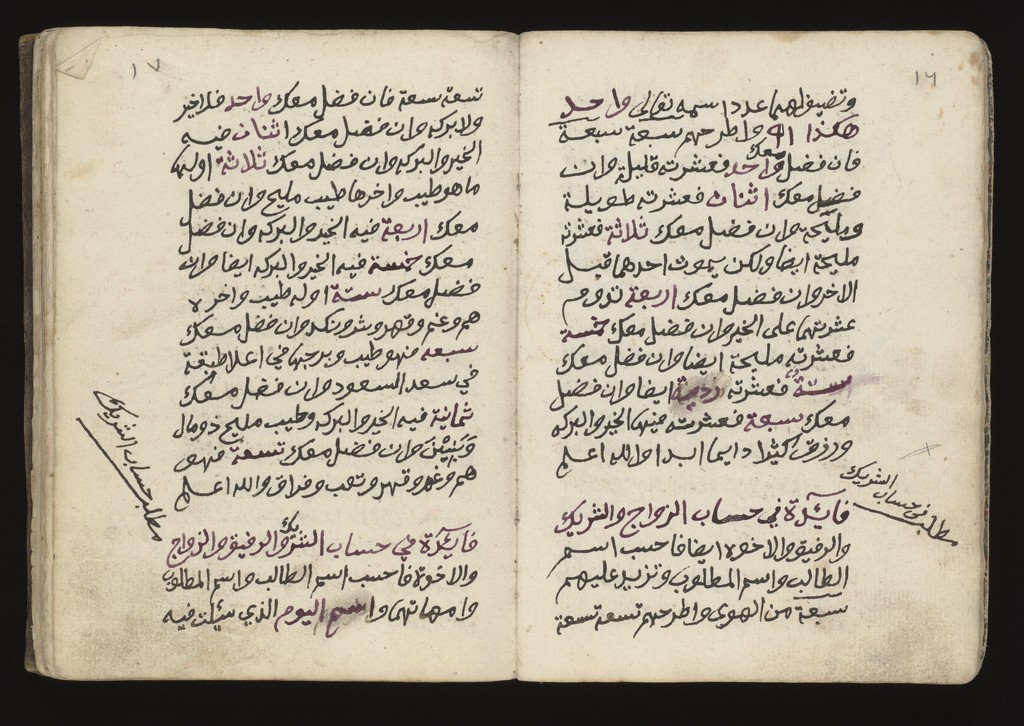 ١٦
وتضيف لهما عدد اسمه تعالى واحد
هكذا واطرحهم سبعة سبعة
فان فضل معك واحد فعشرته قليلة وان
فضل معك اثنان فعشرته طويلة
ومليحة وان فضل معك ثلاثة فعشرته
مليحة ايضا ولكن يموت احدهما قبل
الاخر وان فضل معك اربعة تدوم
عشرتهما على الخير وان فضل معك خمسة
فعشرته مليحة ايضا وان فضل معك
ستة فعشرته ردية ايضا وان فضل
معك سبعة فعشرته فيها الخير والبركه
ورزق كثيرا دايما ابدا والله اعلم
مطلب في حساب الشريك
فايدة في حساب الزواج والشريك
والرفيق والاخوه ايضا فاحسب اسم
الطالب واسم المطلوب وتزيد عليهم
سبعة من الهوى واطرحهم تسعة تسعة
١٧
تسعة تسعة فان فضل معك واحد فلا خير
ولا بركه وان فضل معك اثنان فيه
الخير والبركه وان فضل معك ثلاثة اولها
ما هو طيب واخرها طيب مليح وان فضل
معك اربعة فيه الخير والبركه وان فضل
معك خمسة فيه الخير والبركه ايضا وان
فضل معك ستة اوله طيب واخره
هم وغم وقهر وشر ونكد وان فضل معك
سبعه فهو طيب وبرجها في اعلا طبقة
في سعد السعود وان فضل معك
ثمانية فيه الخير والبركه وطيب مليح ذو مال
وبنين وان فضل معك تسعة فهو
هم وغم وقهر وتعب وفراق والله اعلم
مطلب حساب الشريك
فايدة في حساب الشريك والرفيق والزواج
والاخوة فاحسب اسم الطالب واسم المطلوب
وامهاتهما واسم اليوم الذي سئلت فيه